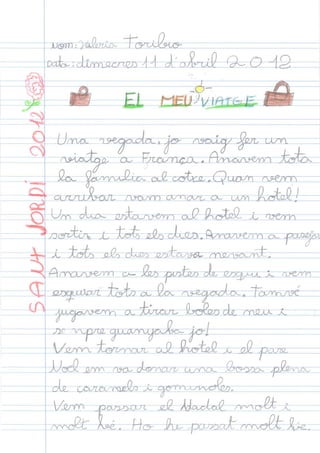 Nom: Valeria Toribio
data: dimecres 11 d'abril 2012
EL MEU VIATGE
SANT JORDI 2012
Una vegada, jo vaig fer un
viatge a França. Anavem tota
la familia al cotxe. Quan vem
arribar vam anar a un hotel!
Un dia estavem al hotel i vem
sortir i tots els dies. Anavem a passejar
i tots els dies estava nevant.
Anavem a les pistes de esquí i vem
esquiar tots a la vegada. També
jugavem a tirar boles de neu i
sempre guanyaba jo!
Vem tornar al hotel i el pare
Noel em va donar una bossa plena
de caramels i gominoles.
Vem passar el Nadal molt i
molt bé. Ho he passat molt bé.